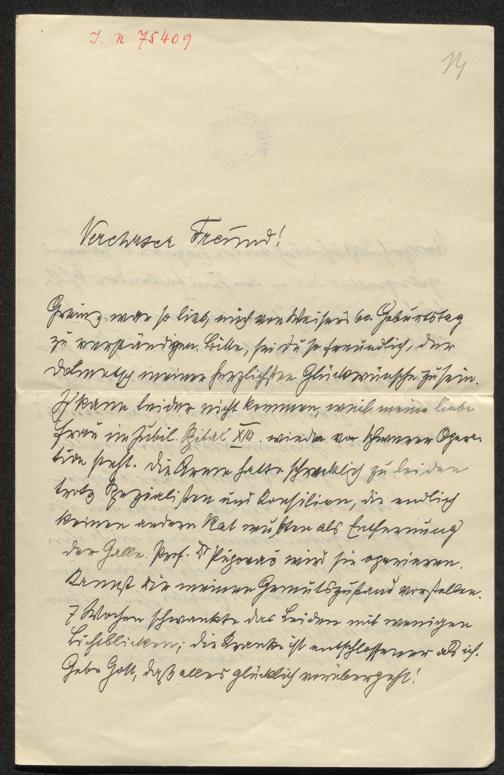 I. N 75409
Verehrter Freund!
Grainz war so lieb, mich von Weisers 60. Geburtstag
zu verständigen. Bitte, sei du so freundlich, der
Dolmetsch meiner herzlichsten Glückwünsche zu sein.
Ich kann leider nicht kommen, weil meine liebe
Frau im Jubil. Spital XIII. wieder vor schwerer Opera-
tion steht. Die Arme hatte schrecklich zu leiden
trotz Spezialisten und Konsilien, die endlich
keinen andern Rat wußten als Entfernung
der Galle. Prof. Dr wird sie operieren.
Kannst dir meinen Gemütszustand vorstellen.
7 Wochen schwankte das Leiden mit wenigen
Lichtblicken; die Kranke ist entschlossener als ich.
Gebe Gott, daß alles glücklich vorübergeht!